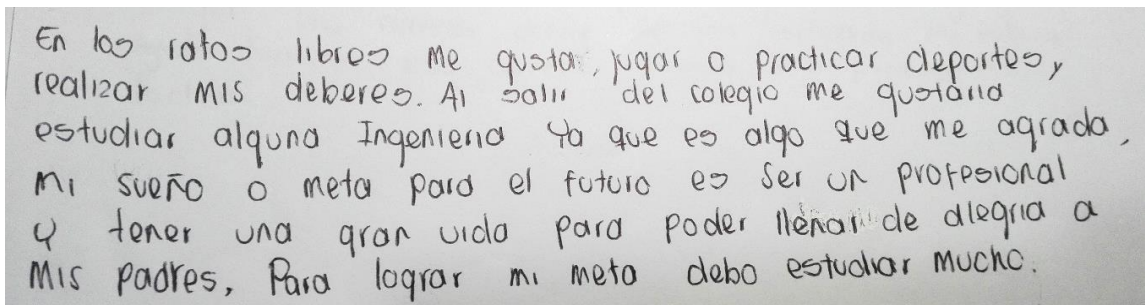 En los ratos libres me gusta, jugar o practicar deportes,
realizar mis deberes. Al salir del colegio me gustaria
estudiar alguna Ingenieria Ya que es algo que me agrada,
mi sueño o meta para el futuro es ser un profesional
y tener una gran vida para poder llenar de alegria a
Mis padres, Para lograr mi meta debo estudiar mucho.